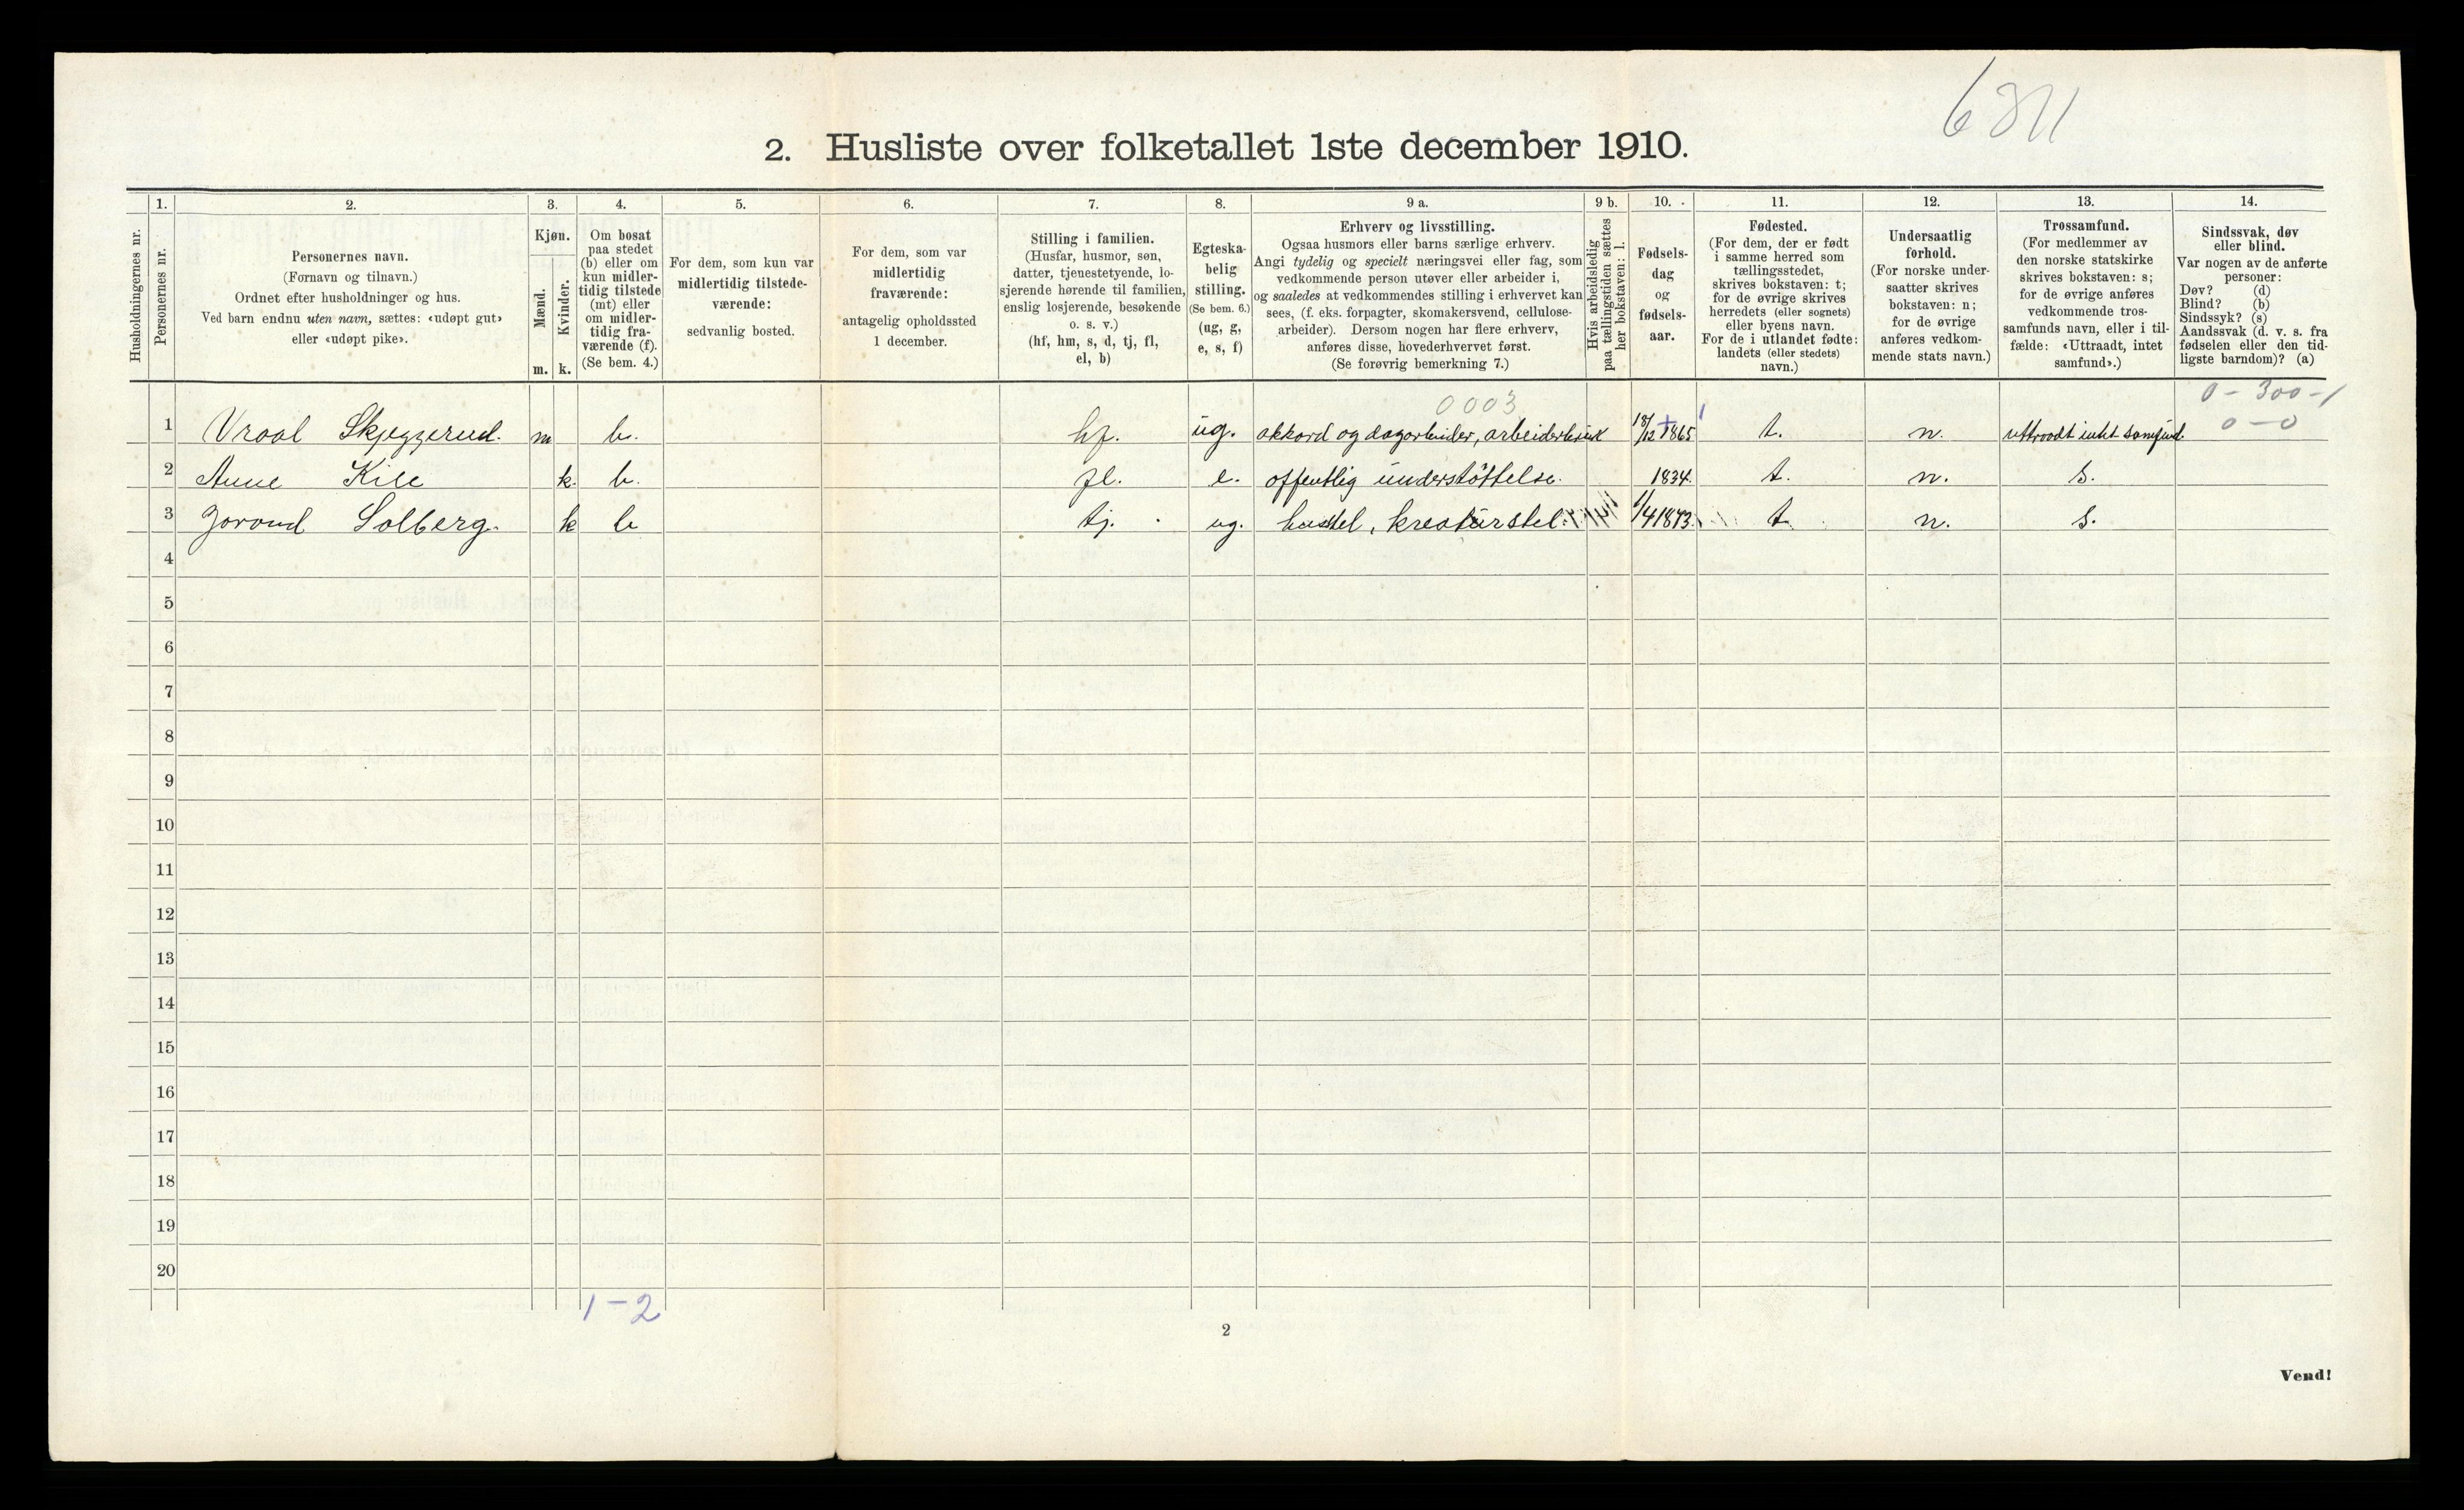 2. Husliste over folketallet 1ste december 1910.
Husholdningernes nr.
1.
Personernes nr.
2.
Personernes navn.
(Fornavn og tilnavn.)
Ordnet efter husholdninger og hus.
Ved barn endnu uten navn, sættes: «udøpt gut»
eller «udøpt pike».
3.
Kjøn.
Mænd.
Kvinder.
m. k.
4.
Om bosat
paa stedet
(b) eller om
kun midler-
tidig tilstede
(mt) eller
om midler-
tidig fra-
værende (f).
(Se bem. 4.)
5.
For dem, som kun var
midlertidig tilstede-
værende:
sedvanlig bosted.
6.
For dem, som var
midlertidig
fraværende:
antagelig opholdssted
1 december.
7.
Stilling i familien.
(Husfar, husmor, søn,
datter, tjenestetyende, lo-
sjerende hørende til familien,
enslig losjerende, besøkende
o. s. v.)
(hf, hm, s, d, tj, fl,
el, b)
8.
Egteska-
belig
stilling.
(Se bem. 6.)
(ug, g,
e, s, f)
9 a.
Erhverv og livsstilling.
Ogsaa husmors eller barns særlige erhverv.
Angi tydelig og specielt næringsvei eller fag, som
vedkommende person utøver eller arbeider i,
og saaledes at vedkommendes stilling i erhvervet kan
sees, (f. eks. forpagter, skomakersvend, cellulose-
arbeider). Dersom nogen har flere erhverv,
anføres disse, hovederhvervet først.
(Se forøvrig bemerkning 7.)
9 b.
Hvis arbeidsledig
paa tællingstiden sættes
her bokstaven: l.
10.
Fødsels-
dag
og
fødsels-
aar.
11.
Fødested.
(For dem, der er født
i samme herred som
tællingsstedet,
skrives bokstaven: t;
for de øvrige skrives
herredets (eller sognets)
eller byens navn.
For de i utlandet fødte:
landets (eller stedets)
navn.)
12.
Undersaatlig
forhold.
(For norske under-
saatter skrives
bokstaven: n;
for de øvrige
anføres vedkom-
mende stats navn.)
13.
Trossamfund.
(For medlemmer av
den norske statskirke
skrives bokstaven: s;
for de øvrige anføres
vedkommende tros-
samfunds navn, eller i til-
fælde: «Uttraadt, intet
samfund».)
14.
Sindssvak, døv
eller blind.
Var nogen av de anførte
personer:
Døv? (d)
Blind? (b)
Sindssyk? (s)
Aandssvak (d. v. s. fra
fødselen eller den tid-
ligste barndom)? (a)
0003
0-300-1
0-0
1 Vraal Skjeggerud. m b. hf. ug. akkord og dagarbeider, arbeiderbruk 18/12 1865 t. n. uttraadt intet samfund.
2 Anne Kile k. b. fl. e. offentlig understöttelse. 1834. t. n. s.
3 Jorond Solberg. k b tj. ug. husstel, kreaturstel. 1/4 1873. t. n. s.
4
5
6
7
8
9
10
11
12
13
14
15
16
17
18
19
20
1-2
2
Vend!